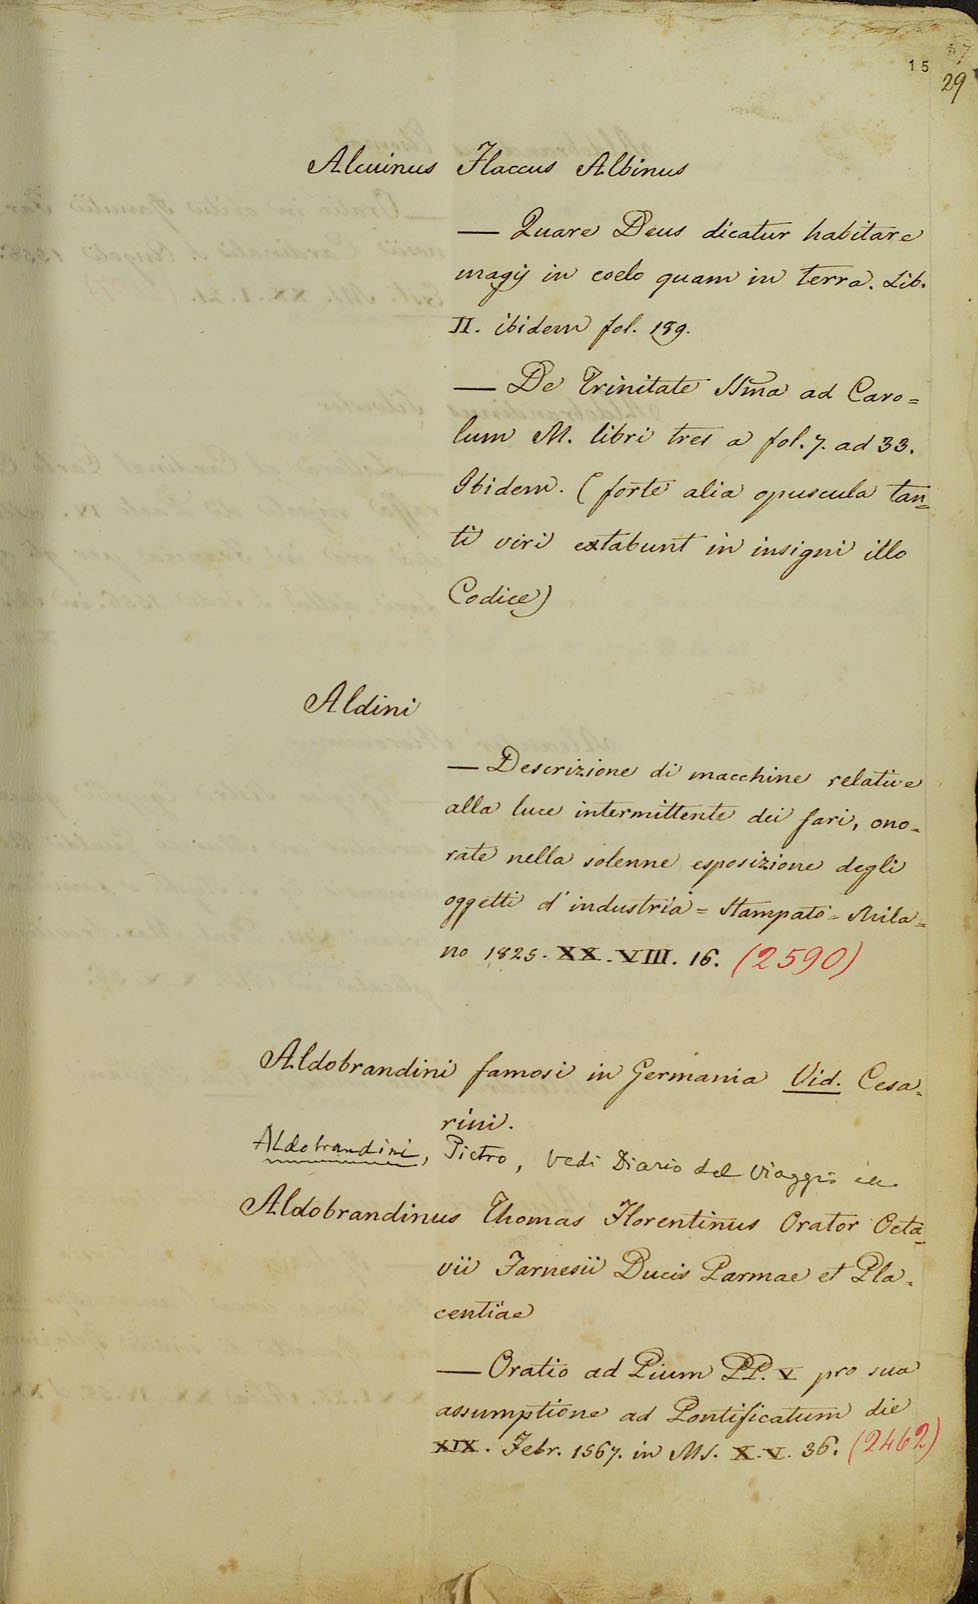 15
29
Alcuinus Flaccus Albinus
— Quare Deus dicatur habitare
magis in coelo quam in terra. Lib.
II. ibidem fol. 189.
— De Trinitate SSma ad Caro=
lum M. libri tres a fol. 7. ad 33.
Ibidem. (forte alia opuscula tan=
ti viri extabunt in insigni illo
Codice)
Aldini
— Descrizione di macchine relative
alla luce intermittente dei fari, ono-
rate nella solenne esposizione degli
oggetti d'industria = Stampato = Mila=
no 1825. XX. VIII. 16. (2590)
Aldobrandini famosi in Germania Vid. Cesa-
rini.
Aldobrandini, Pietro, Vedi Diario del Viaggio
Aldobrandinus Thomas Florentinus Orator Octa=
vii Farnesii Ducis Parmae et Pla-
centiae
— Oratio ad Pium PP. V pro sua
assumptione ad Pontificatum die
XIX. Febr. 1567. in MS. X. V. 36. (2462)